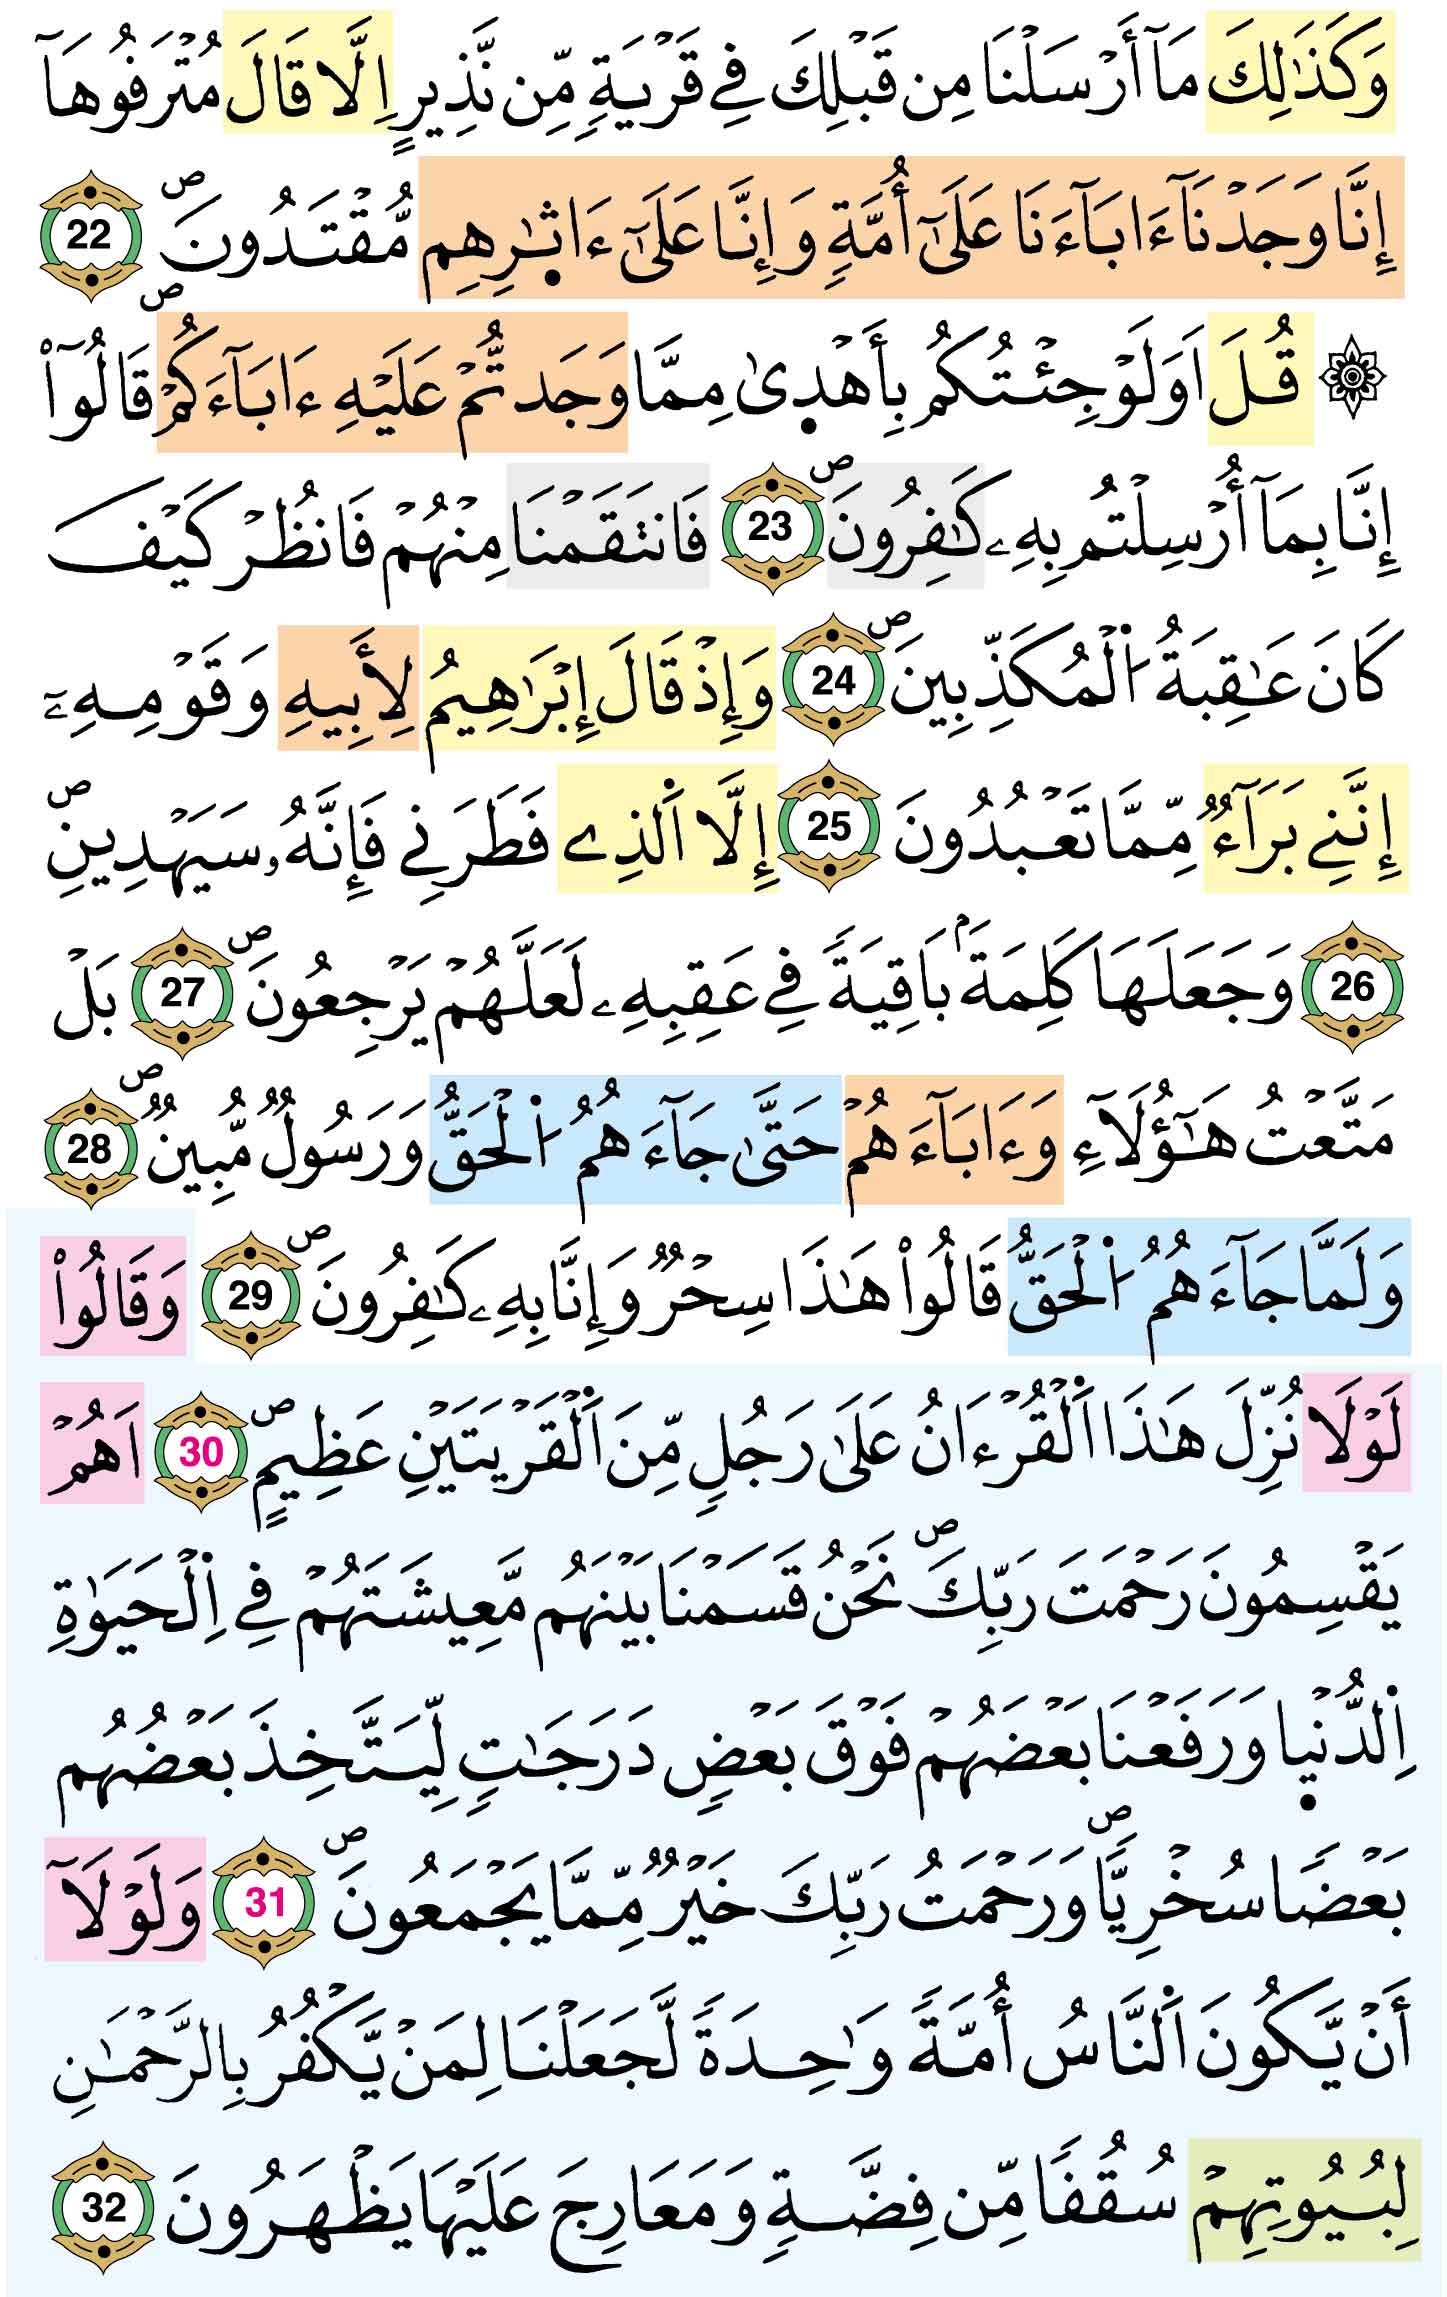 وَكَذَٰلِكَ مَآ أَرْسَلْنَا مِن قَبْلِكَ فِے قَرْيَةٖ مِّن نَّذِيرٍ اِلَّا قَالَ مُتْرَفُوهَآ
إِنَّا وَجَدْنَآ ءَابَآءَنَا عَلَىٰٓ أُمَّةٖ وَإِنَّا عَلَىٰٓ ءَاثٰ۪رِهِم مُّقْتَدُونَۖ 22
۞ قُلَ اَوَلَوْ جِئْتُكُم بِأَهْد۪ىٰ مِمَّا وَجَدتُّمْ عَلَيْهِ ءَابَآءَكُمْۖ قَالُوٓاْ
إِنَّا بِمَآ أُرْسِلْتُم بِهِۦ كَٰفِرُونَۖ 23 فَانتَقَمْنَا مِنْهُمْ فَانظُرْ كَيْفَ
كَانَ عَٰقِبَةُ اُ۬لْمُكَذِّبِينَۖ 24 وَإِذْ قَالَ إِبْرَٰهِيمُ لِأَبِيهِ وَقَوْمِهِۦٓ
إِنَّنِے بَرَآءٞ مِّمَّا تَعْبُدُونَ 25 إِلَّا اَ۬لذِے فَطَرَنِے فَإِنَّهُۥ سَيَهْدِينِۖ
26 وَجَعَلَهَا كَلِمَةَۢ بَاقِيَةٗ فِے عَقِبِهِۦ لَعَلَّهُمْ يَرْجِعُونَۖ 27 بَلْ
مَتَّعْتُ هَٰٓؤُلَآءِ وَءَابَآءَهُمْ حَتَّىٰ جَآءَهُمُ اُ۬لْحَقُّ وَرَسُولٞ مُّبِينٞۖ 28
وَلَمَّا جَآءَهُمُ اُ۬لْحَقُّ قَالُواْ هَٰذَا سِحْرٞ وَإِنَّا بِهِۦ كَٰفِرُونَۖ 29 وَقَالُواْ
لَوْلَا نُزِّلَ هَٰذَا اَ۬لْقُرْءَانُ عَلَىٰ رَجُلٖ مِّنَ اَ۬لْقَرْيَتَيْنِ عَظِيمٍۖ 30 اَهُمْ
يَقْسِمُونَ رَحْمَتَ رَبِّكَۖ نَحْنُ قَسَمْنَا بَيْنَهُم مَّعِيشَتَهُمْ فِے اِ۬لْحَيَوٰةِ
اِ۬لدُّنْي۪ا وَرَفَعْنَا بَعْضَهُمْ فَوْقَ بَعْضٖ دَرَجَٰتٖ لِّيَتَّخِذَ بَعْضُهُم
بَعْضٗا سُخْرِيّٗاۖ وَرَحْمَتُ رَبِّكَ خَيْرٞ مِّمَّا يَجْمَعُونَۖ 31 وَلَوْلَآ
أَنْ يَّكُونَ اَ۬لنَّاسُ أُمَّةٗ وَٰحِدَةٗ لَّجَعَلْنَا لِمَنْ يَّكْفُرُ بِالرَّحْمَٰنِ
لِبُيُوتِهِمْ سُقُفٗا مِّن فِضَّةٖ وَمَعَارِجَ عَلَيْهَا يَظْهَرُونَ 32